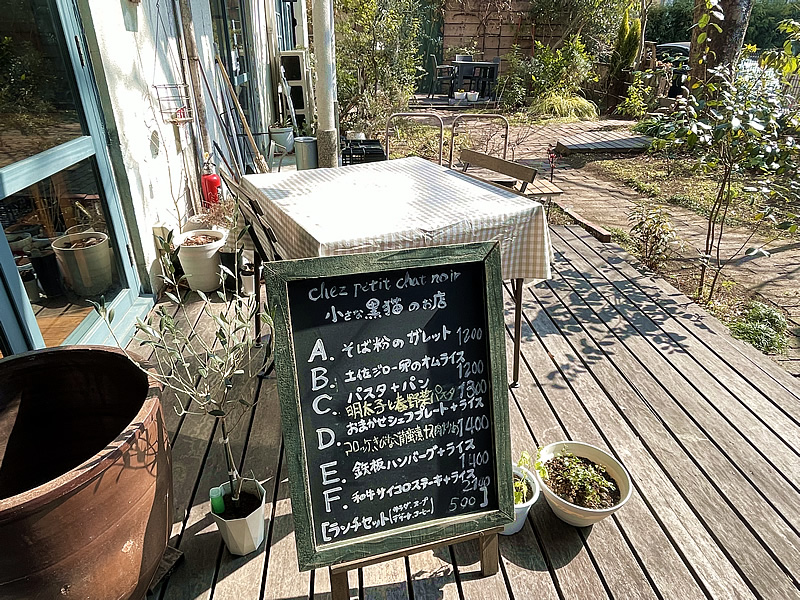 chez petit chat noir
小さな黒猫のお店
A. そば粉のガレット 1200
B. 土佐ジロー卵のオムライス 1200
C. パスタ+パン 1300
明太子と春野菜パスタ
D. おまかせシェフプレート+ライス 1400
コロッケ
E. 鉄板ハンバーグ+ライス 1400
F. 和牛サイコロステーキ+ライス 2100
[ランチセット(サラダ、スープ 500]
デザート、コーヒー)